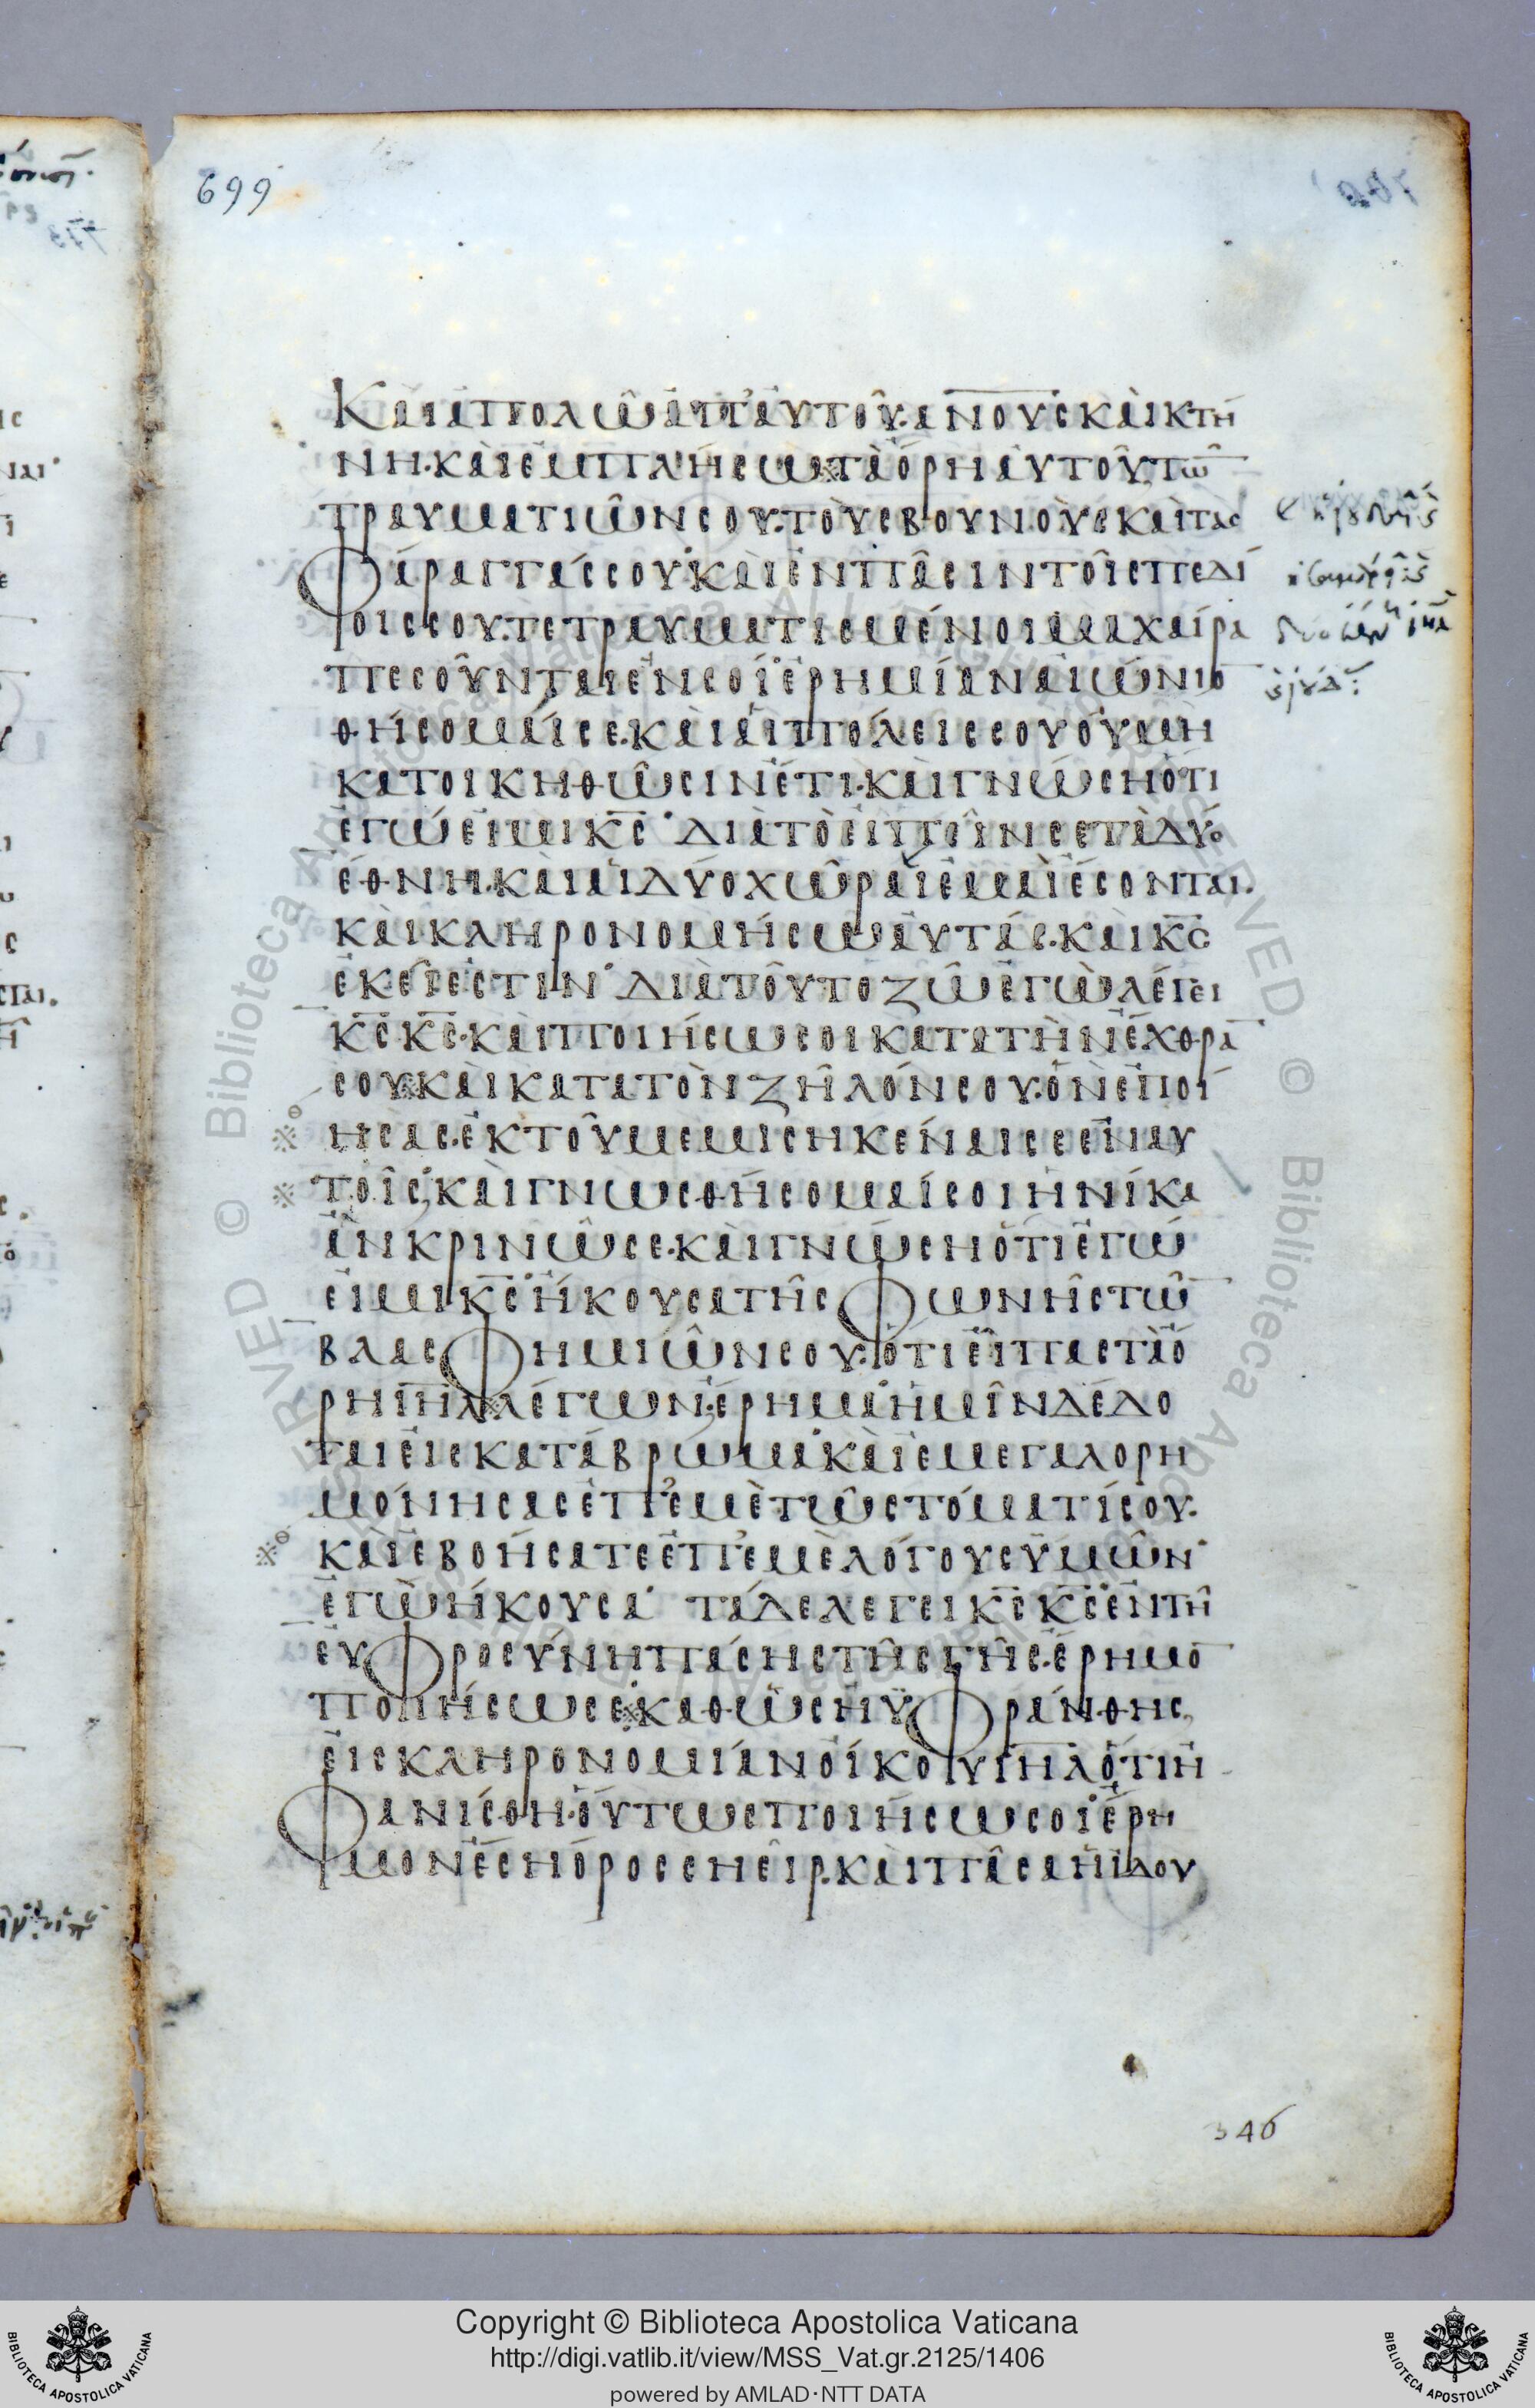 699
Καὶ ἀπολῶ ἀπ' αὐτοῦ. ἀ̅ν̅ο̅υ̅ς̅ καὶ κτή
νη. καὶ ἐμπλήσω ※ τὰ ὄρη αὐτοῦ τῶ̅
τραυματιῶν σου. τοὺς βουνούς καὶ τὰς
Φάραγγάς σου· καὶ ἐν πᾶσιν τοῖς πεδί
οις σου. τετραυματισμένοι μαχαίρα
πεσοῦνται ἐν σοί· ἐρημίαν αἰώνιο̅
θήσομαί σε. καὶ αἱ πόλεις σου οὐ μὴ
κατοικηθῶσιν ἔτι. καὶ γνώση ὅτι
ἐγώ εἰμι κ̅ς̅· Διὰ τὸ εἰπεῖν σε τὰ δύο
ἔθνη. καὶ αἱ δύο χῶραι ἐμαὶ ἔσονται.
καὶ κληρονομήσω αὐτάς. καὶ κ̅ς̅
ἐκεῖ ἐστιν· Διὰ τοῦτο ζῶ ἐγὼ λέγει
κ̅ς̅ κ̅ς̅. καὶ ποιήσω σοι κατὰ τὴν ἔχθρα̅
σου ※ καὶ κατὰ τὸν ζῆλόν σου. ὃν ἐποί
※ ησας. ἐκ τοῦ μεμισηκέναι σε ἐν αυ
※ τοῖς· καὶ γνωσθήσομαί σοι ἡνίκα
ἂν κρινῶ σε. καὶ γνώση ὅτι ἐγώ
εἰμι κ̅ς̅· ἤκουσα τῆς Φωνῆς τῶ̅
βλασΦημιῶν σου. ὅτι εἶπας τὰ ὄ
ρη ι̅η̅λ̅ ※ λέγων. ἔρημα· ἡμῖν δέδο
ται εἰς κατάβρωμα· καὶ ἐμεγαλορη
μόνησας ἐπ' ἐμὲ τῶ στόματί σου.
※ καὶ ἐβοήσατε ἐπ' ἐμὲ λόγους ὑμῶν·
ἐγὼ ἤκουσα· τάδε λέγει κ̅ς̅ κ̅ς̅· ἐν τῆ
εὐΦροσύνη πάσης τῆς γῆς. ἔρημο̅
ποιήσω σε· ※ καθὼς ηὐΦράνθης
εἰς κληρονομίαν οἴκου ι̅η̅λ̅ ὅτι ἠ
Φανίσθη. οὕτως ποιήσω σοι· ἔρη
μον ἔση ὄρος σηείρ. καὶ πᾶσα ἡ ἰδου
346
Copyright © Biblioteca Apostolica Vaticana
http://digi.vatlib.it/view/MSS_Vat.gr.2125/1406
powered by AMLAD·NTT DATA
BIBLIOTECA APOSTOLICA VATICANA
BIBLIOTECA APOSTOLICA VATICANA